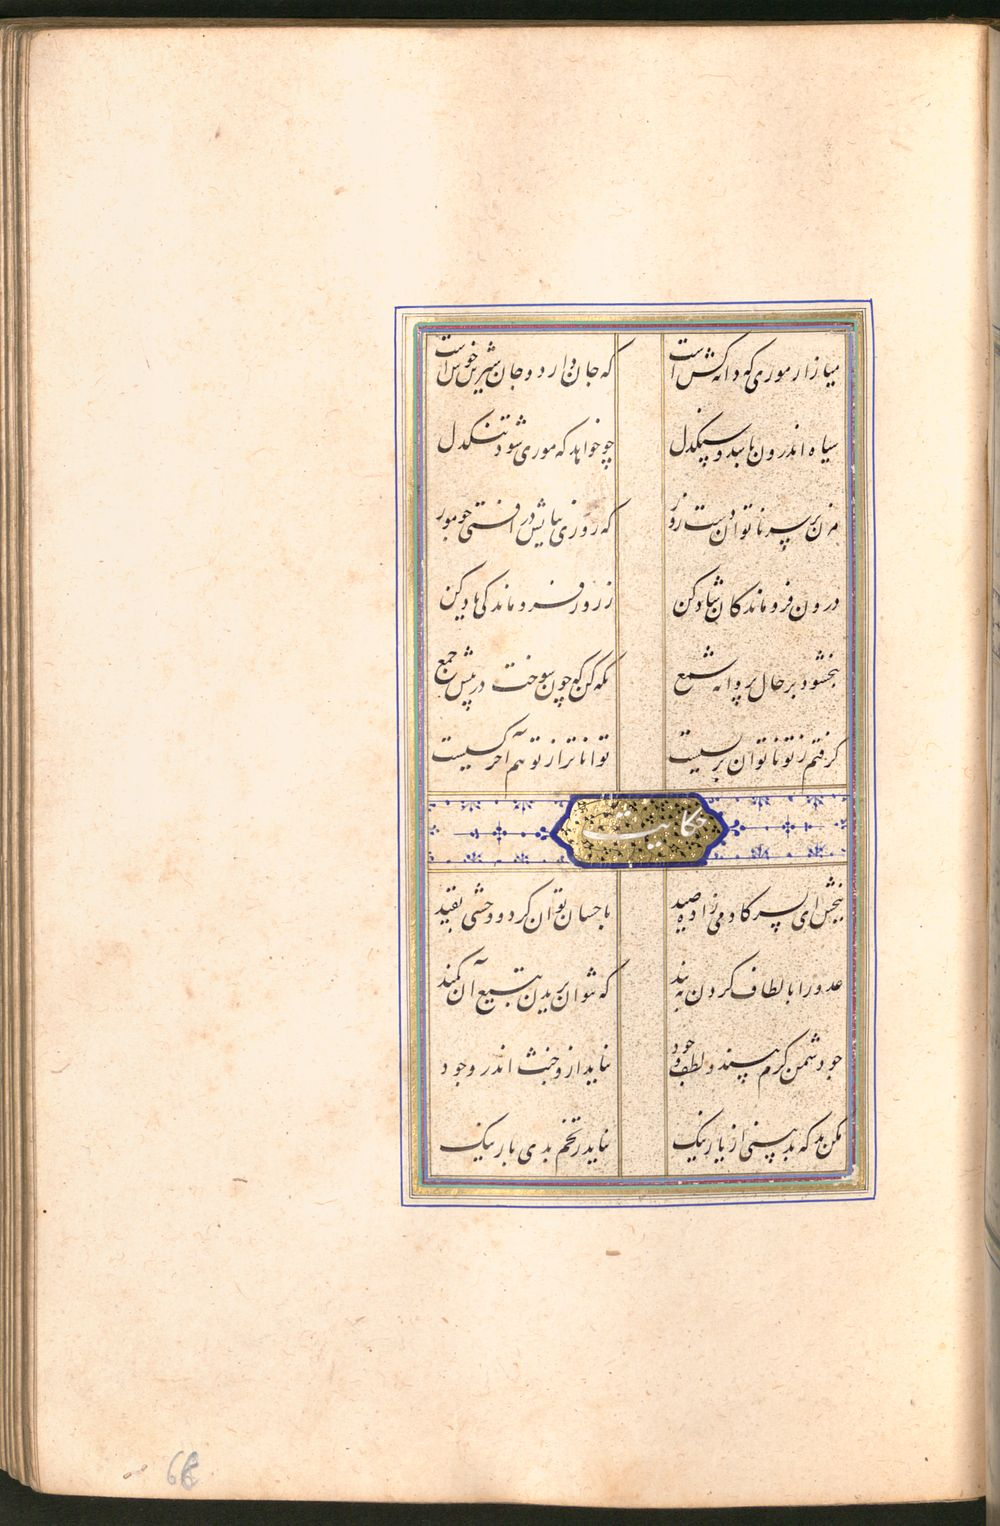 میازار موری که دانه کش است که جان دارد و جان شیرین خوش است
سیاه اندرون باشد و سنگدل چو خواهد که موری شود تنگدل
مزن بر سر ناتوان دست زور که روزی بپایش در افتی چو مور
درون فروماندگان شاد کن ز روز فروماندگی یاد کن
نبخشود بر حال پروانه شمع نگه کن که چون سوخت در پیش جمع
گرفتم ز تو ناتوان تر بسیست تواناتر از تو هم آخر کسیست
حکایت
ببخش ای پسر کادمی زاده صید باحسان توان کرد و وحشی بقید
عدو را بالطاف گردن ببند که نتوان بریدن بتیغ آن کمند
چو دشمن کرم بیند و لطف و جود نیاید ازو خبث اندر وجود
مکن بد که بد بینی از یار نیک نیاید ز تخم بدی بار نیک